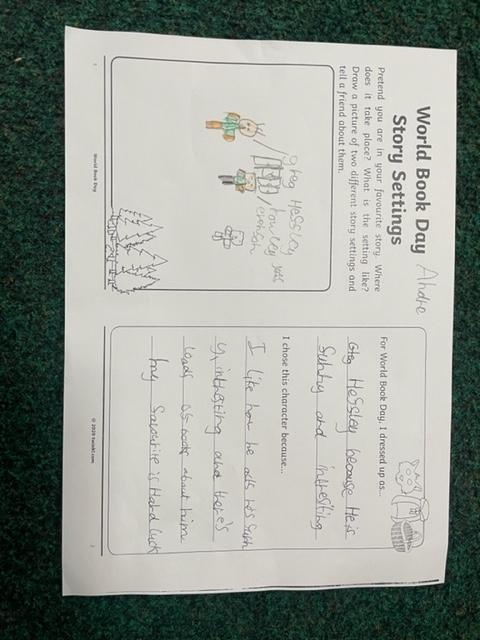 World Book Day
Story Settings
Andre
Pretend you are in your favourite story. Where
does it take place? What is the setting like?
Draw a picture of two different story settings and
tell a friend about them.
greg Heffley
rowley
World Book Day
For World Book Day, I dressed up as...
Greg Heffley because He is
funny and intresting
I chose this character because...
I like how he acts he's
intresting and there's
loads of books about him
my favourite is Hard luck
© 2020 twinkl.com